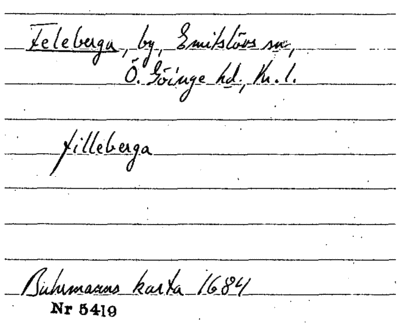 Feleberga, by, Emitslövs sn,
Ö. Göinge hd, Kr. l.
filleberga
Buhrmanns karta 1684
Nr 5419